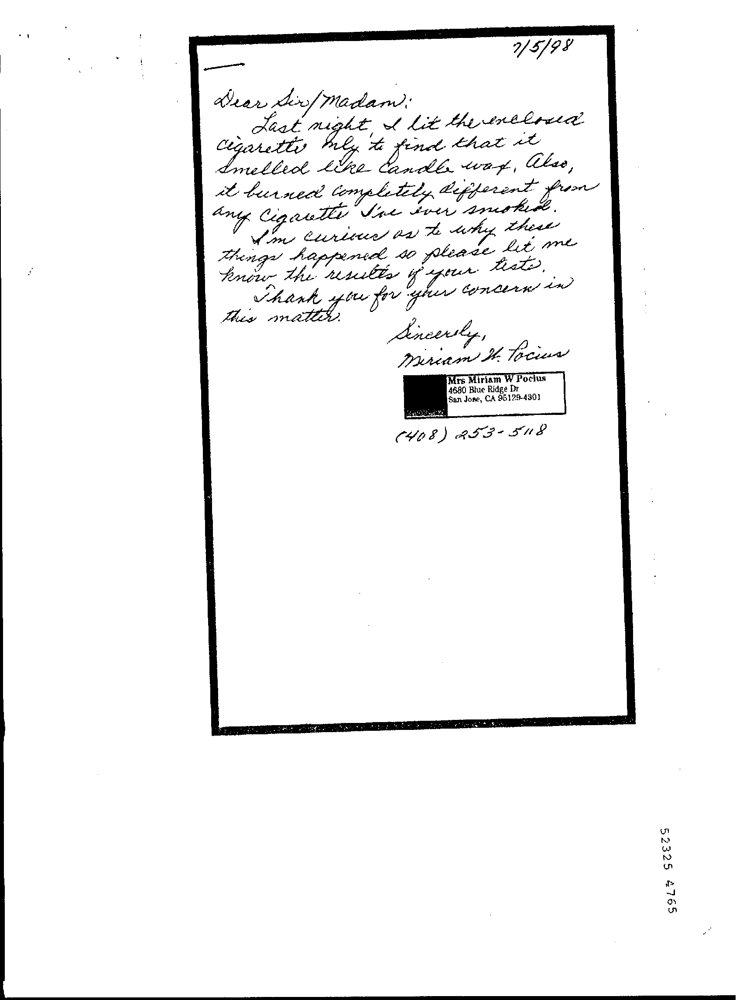 7/5/98
Dear Sir/Madam:
Last night, I lit the enclosed
cigarette only to find that it
smelled like candle wax. Also,
it burned completely different from
any cigarette I've ever smoked.
I'm curious as to why these
things happened so please let me
know the results of your tests.
Thank you for your concern in
this matter.
Sincerely,
Miriam W. Pocius
Mrs Miriam W Pocius
4680 Blue Ridge Dr
San Jose, CA 95129-4301
(408) 253-5118
52325 4765